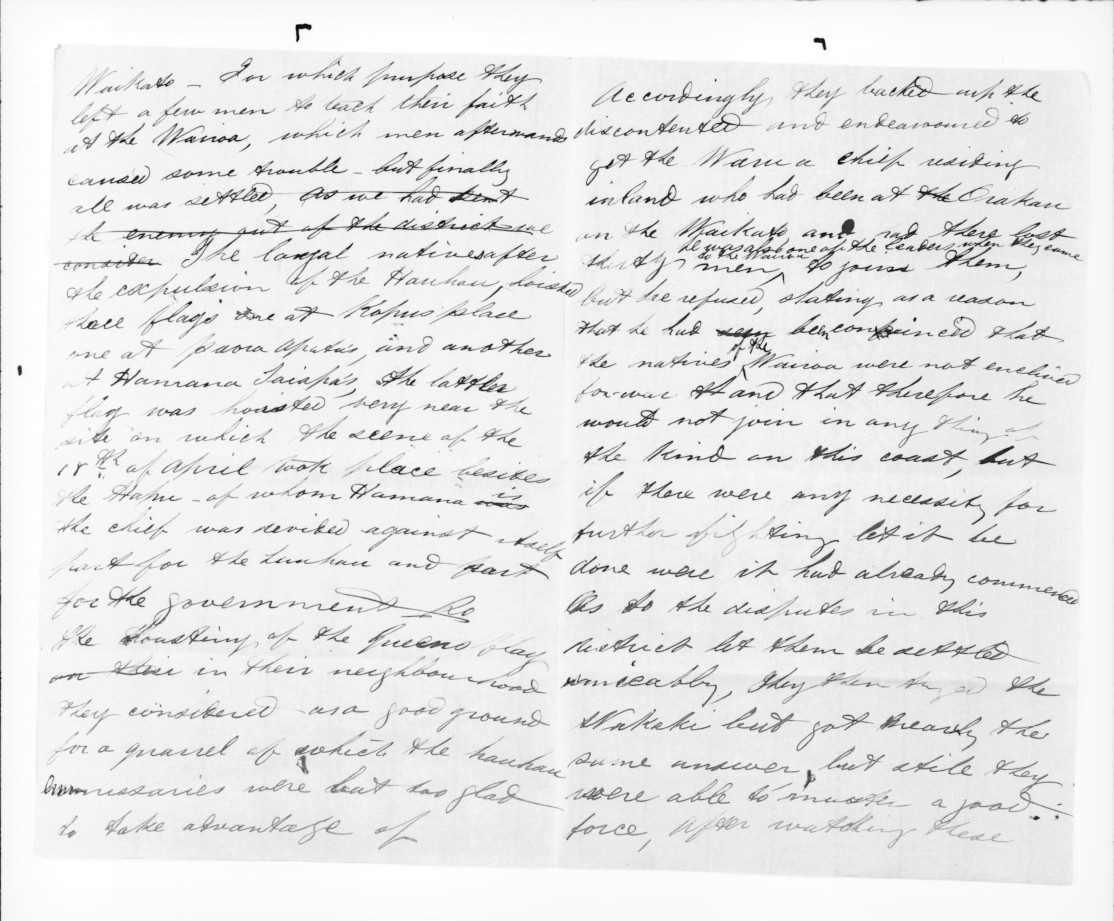 Waikato - For which purpose they
left a few men to teach their faith
at the Wairoa, which men afterwards
caused some trouble - but finally
all was settled, as we had sent
the enemy out of the district we
consider The loyal natives after
the expulsion of the Hauhau, hoisted
three flags one at Kopus place
one at paora apatu's, and another
at Hamana Taiapa's, the latter
flag was hoisted very near the
site on which the scene of the
18th of April took place besides
the Hapu - of whom Hamana was is
the chief was devided against itself
part for the hauhau and part
for the government So
the housting of the Queens flag
on their in their neighbourhood
they considered as a good ground
for a quarrel of which the hauhau
emmissaries were but too glad
to take advantage of
Accordingly, they backed up the
discontented and endeavoured to
get the Warua chief residing
inland who had been at the Orakau
on the Waikato and had there lost
he was also one of the leaders when they came
to the Wairoa
thirty men, to join them,
but he refused, stating as a reason
that he had been convinced that
of the
the natives Wairoa were not enclined
for war and that therefore he
would not join in any thing of
the kind on this coast, but
if there were any necessity for
further fighting let it be
done were it had already commenced
As to the disputes in this
district let them be settled
amicably, They then tryed the
Wakaki but got nearly the
same answer, but stile they
were able to muster a good
force, After watching these